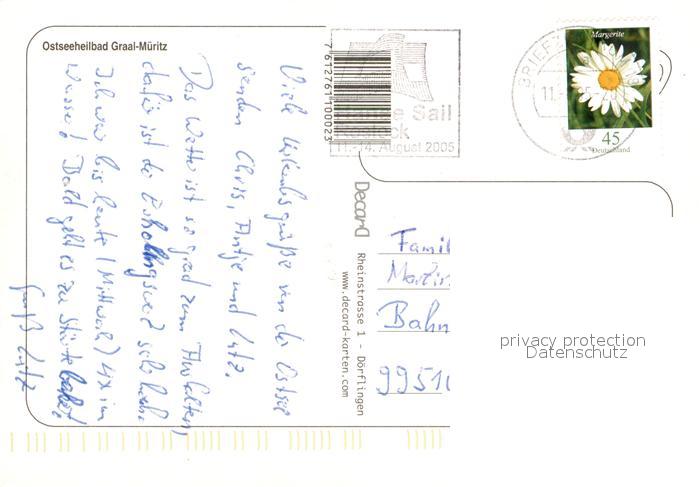 Ostseeheilbad Graal-Müritz
Viele Urlaubsgrüße von der Ostsee
senden Chris, Antje und Lutz.
Das Wetter ist so grad zum Aushalten,
dafür ist der Erholungswert sehr hoch.
Ich war bis heute (Mittwoch) 4x im
Wasser! Bald geht es zu Störtebeker!
Gruß Lutz
7612761100023
Sail
Rostock
11.-14. August 2005
BRIEFZ
11.
Margerite
45
Deutschland
Decard
Rheinstrasse 1 - Dörflingen
www.decard-karten.com
Famil
Martin
Bahn
99510
privacy protection
Datenschutz